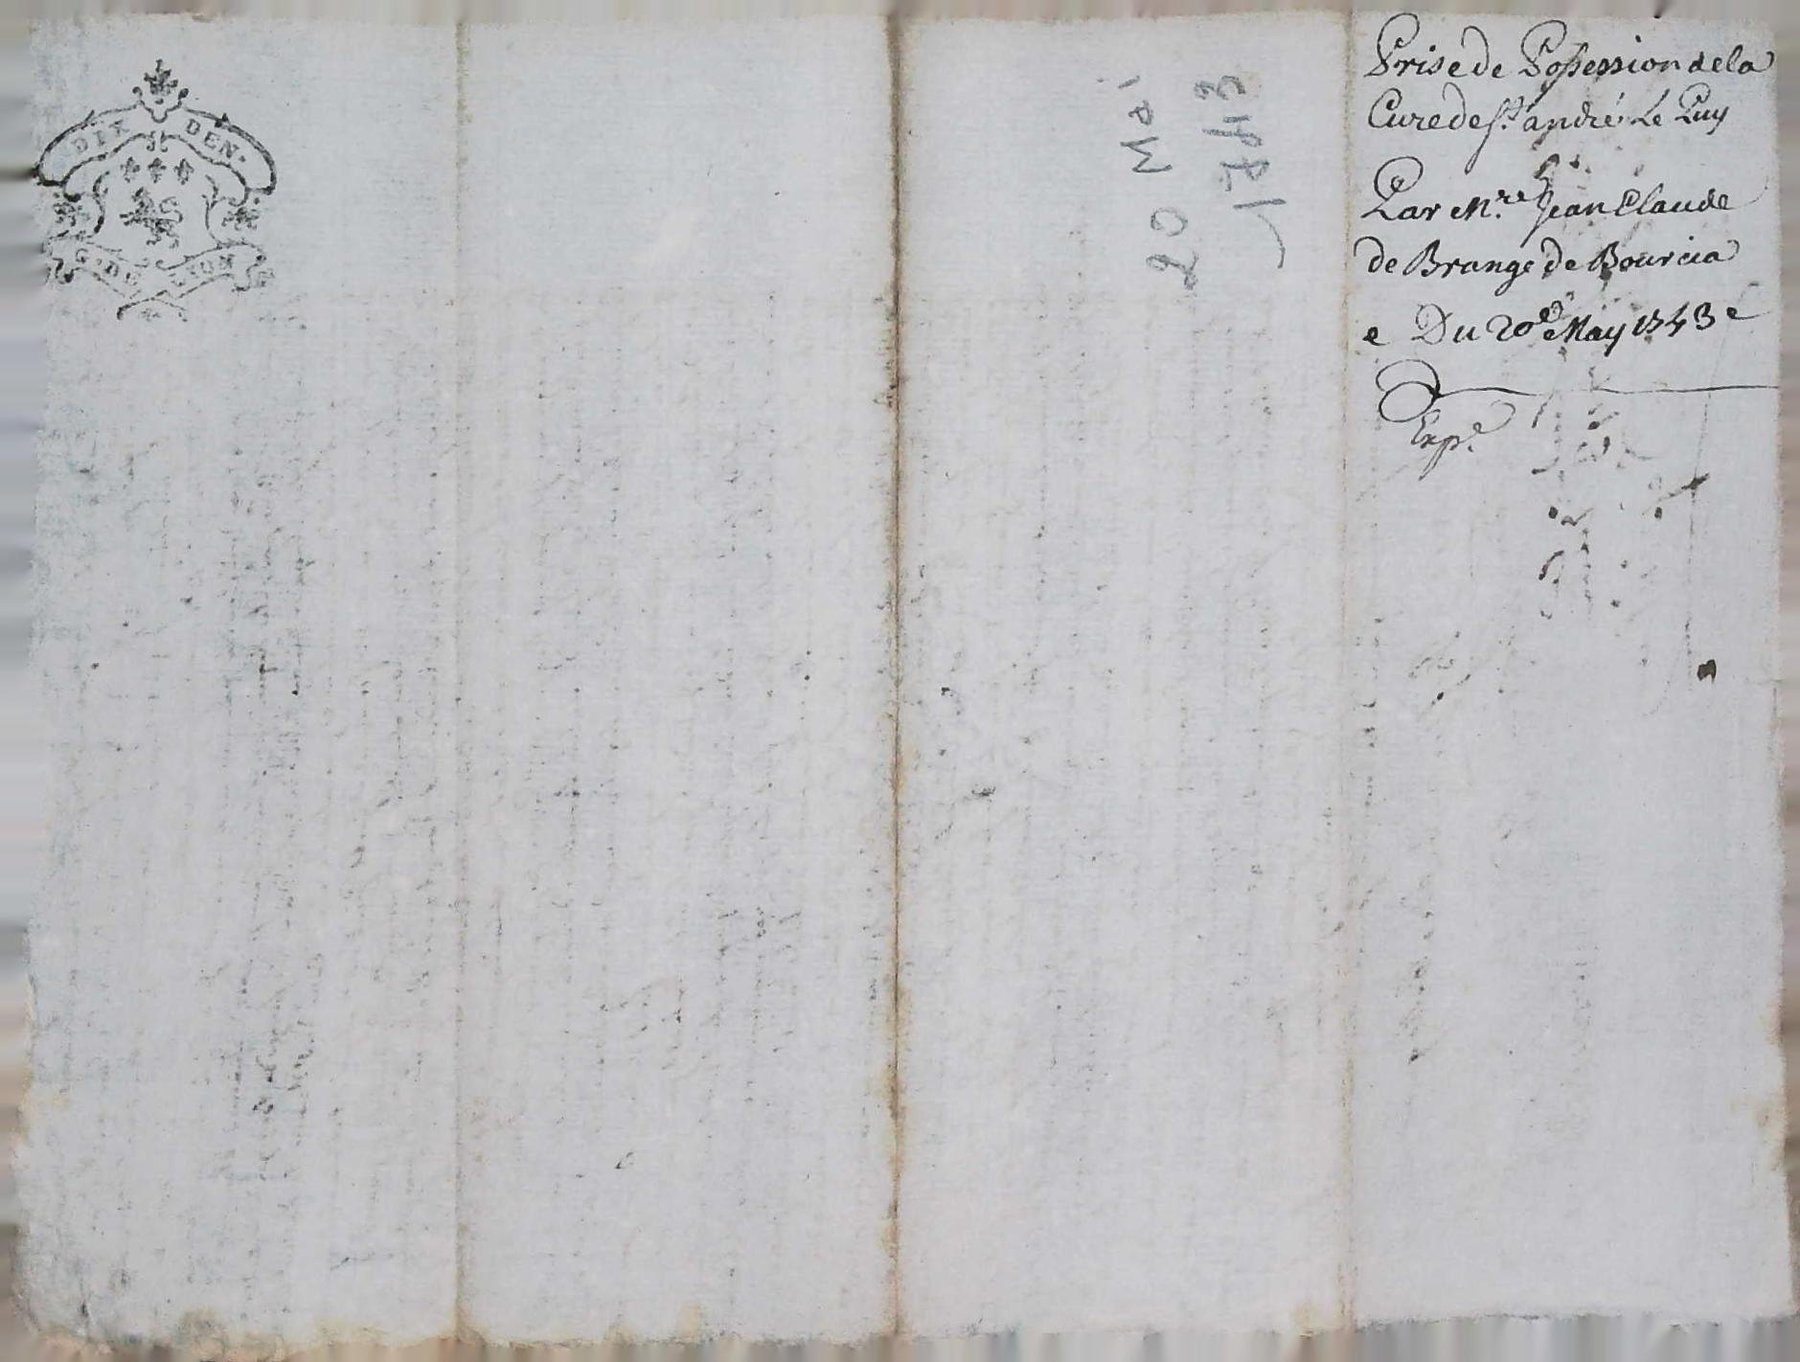 DIX DEN.
G. DE LYON
20 Mai
1743
Prise de Possession de la
Cure de st andré Le Puy
Par Mre Jean Claude
de Brange de Bourcia
e Du 20e May 1743 e
Expe